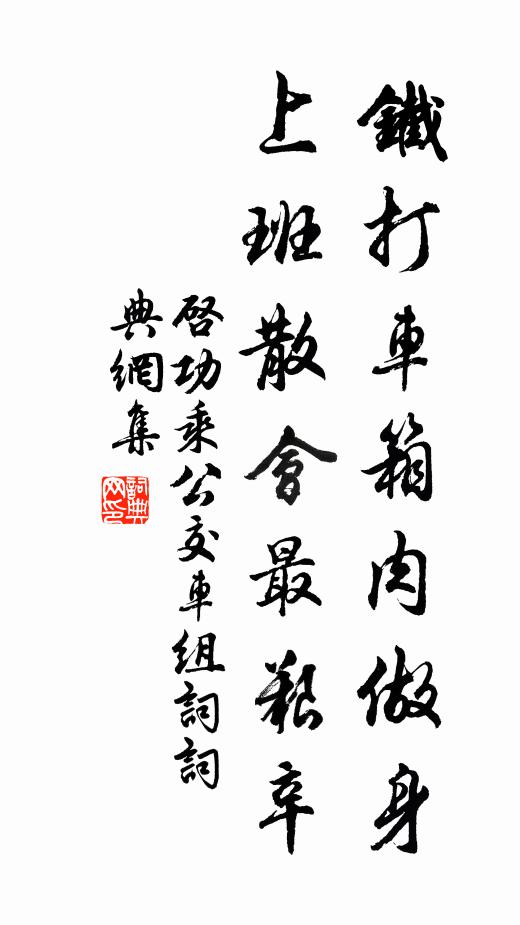 鐵打車箱肉做身
上班散會最艱辛
啓功乘公交車組詞詞
典網集
詞典网印